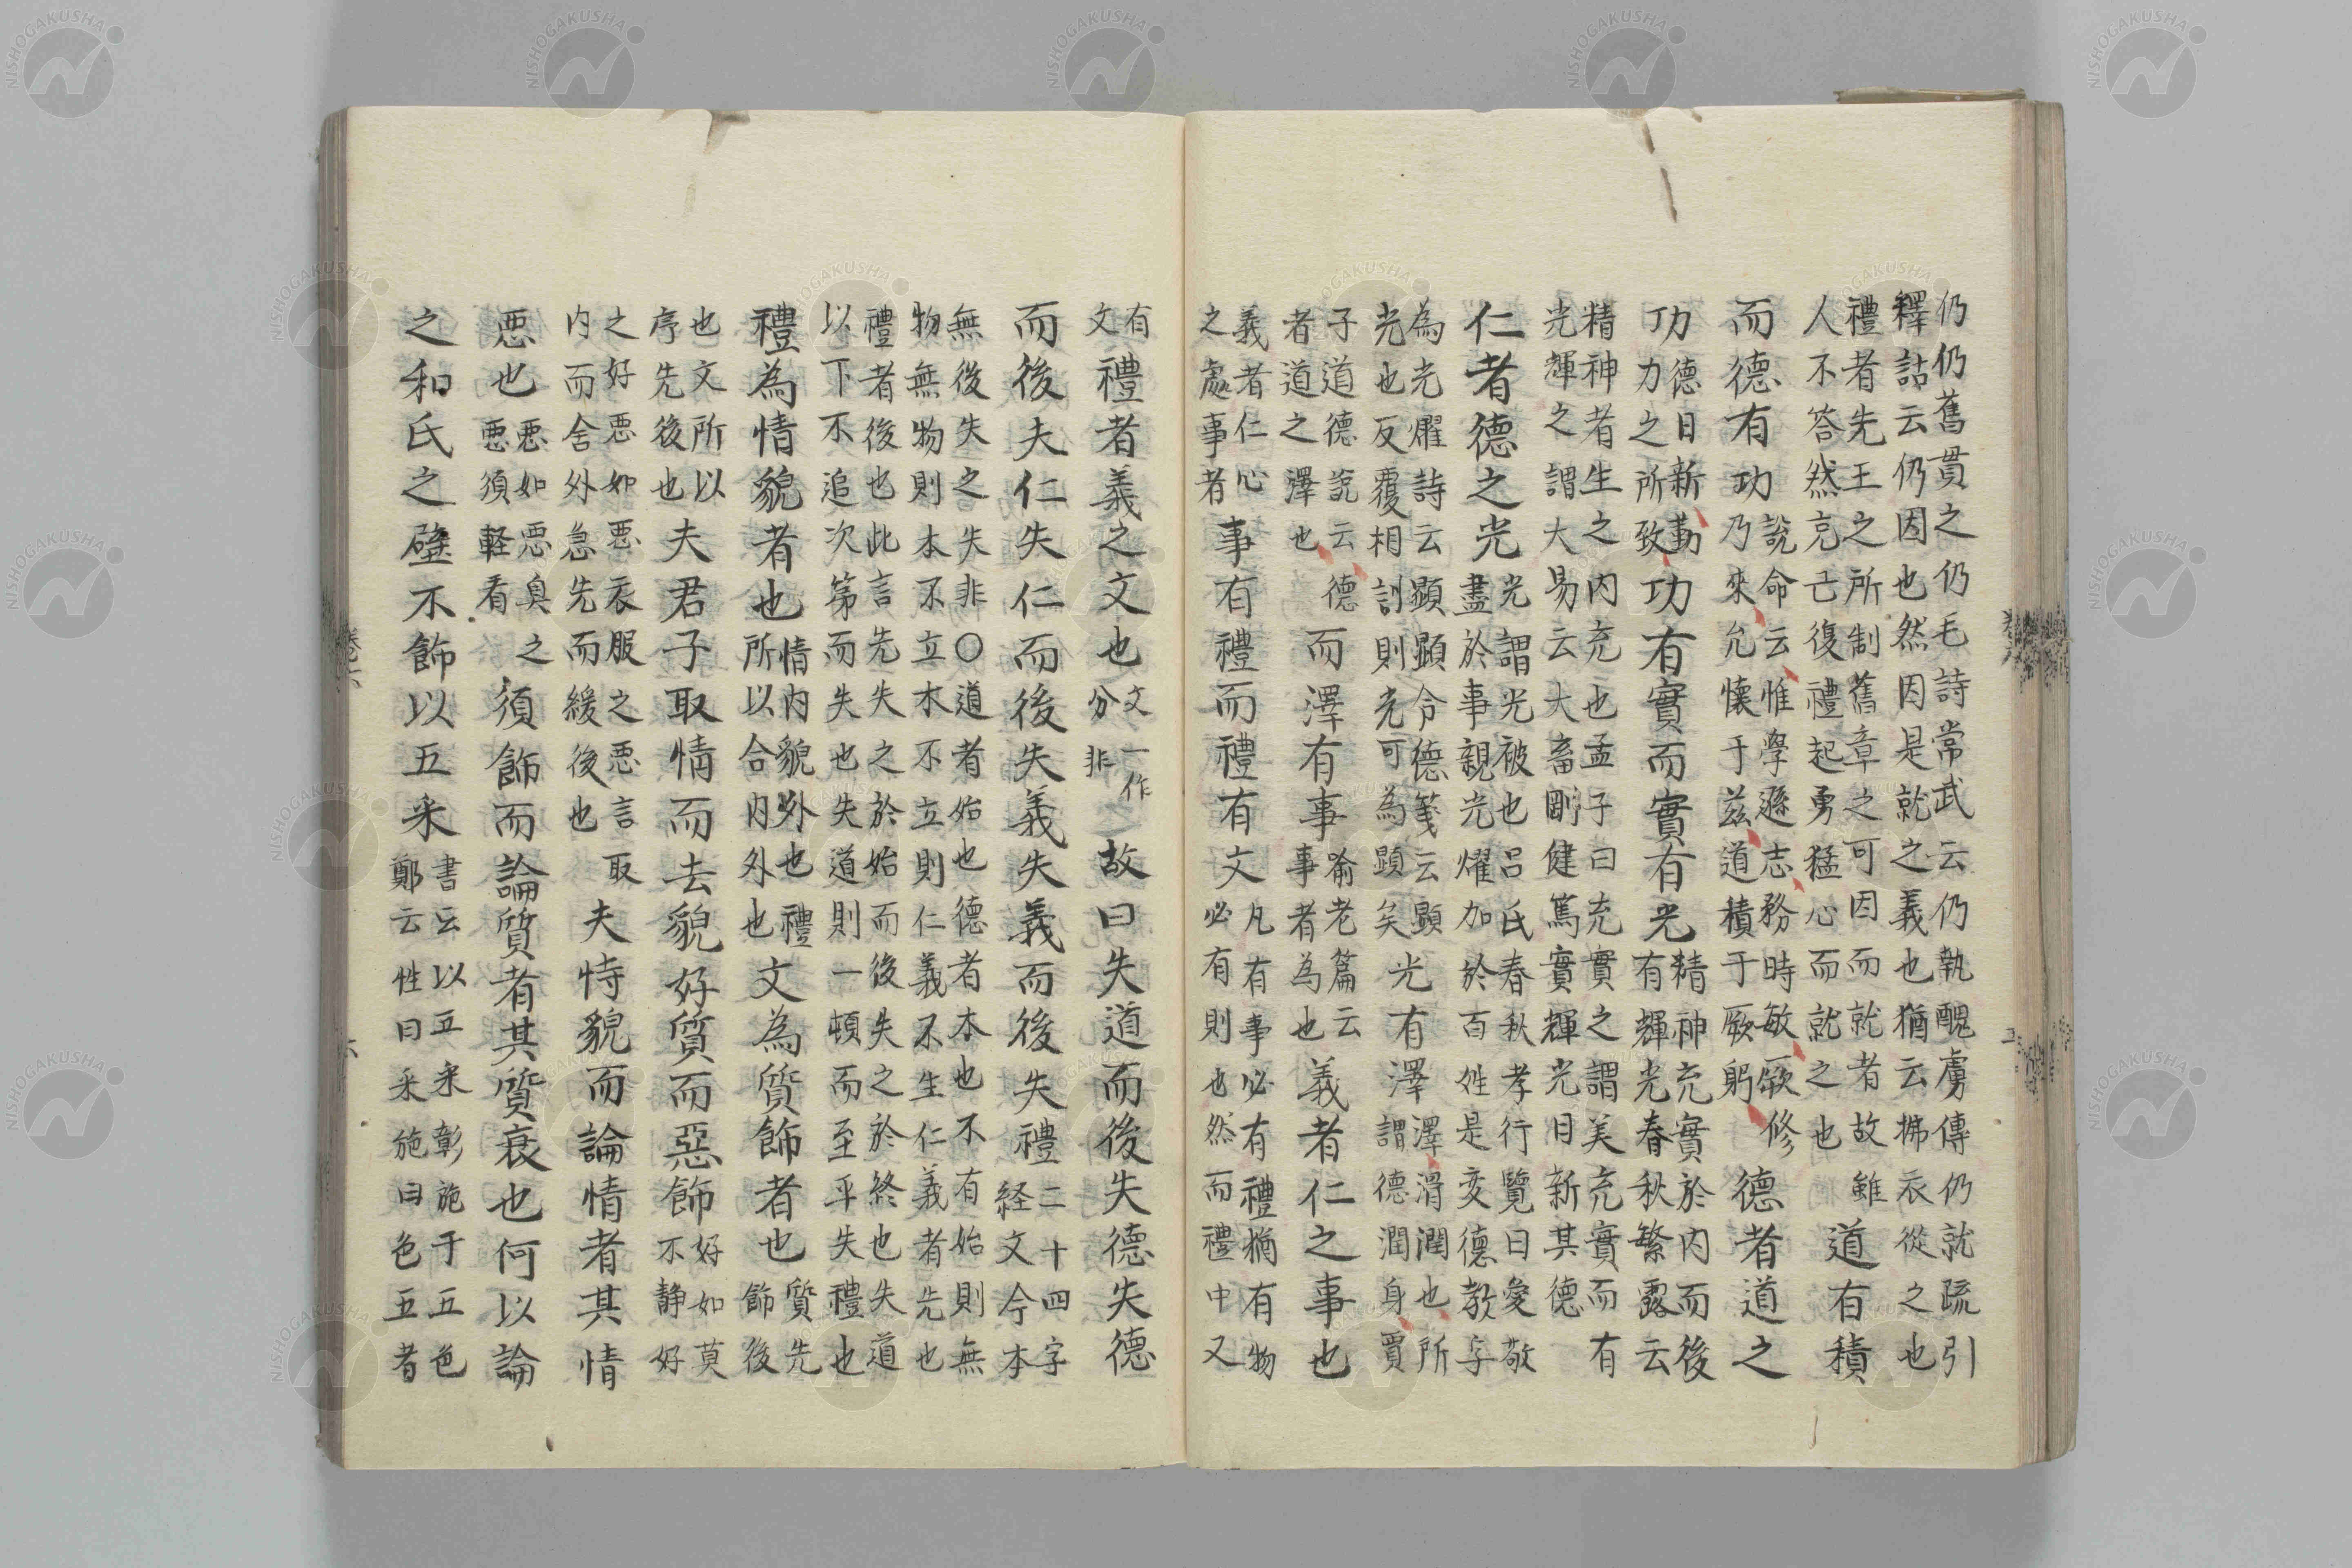 仍仍舊貫之仍毛詩常武云仍執醜虜傳仍就疏引
釋詁云仍因也然因是就之義也猶云拂衣從之也
禮者先王之所制舊章之可因而就者故雖
人不答然克己復禮起勇猛心而就之也
道有積
而德有功
說命云惟學遜志務時敏厥修
乃來允懷于茲道積于厥躬
德者道之
功
德日新勤
力之所致
功有實而實有光
精神充實於內而後
有輝光春秋繁露云
精神者生之內充也孟子曰充實之謂美充實而有
光輝之謂大易云大畜剛健篤實輝光日新其德
仁者德之光
光謂光被也呂氏春秋孝行覽曰愛敬
盡於事親光燿加於百姓是交德教字
為光燿詩云顯顯令德箋云顯
光也反覆相訓則光可為顕矣
光有澤
澤滑潤也所
謂德潤身買
子道德說云德
者道之澤也
而澤有事
喻老篇云
事者為也
義者仁之事也
義者仁心
之處事者
事有禮而禮有文
凡有事必有禮猶有物
必有則也然而禮中又
有
文
禮者義之文也
文一作
分非
故曰失道而後失德失德
而後失仁失仁而後失義失義而後失禮
二十四字
経文今本
無後失之失非〇道者始也德者本也不有始則無
物無物則本不立本不立則仁義不生仁義者先也
禮者後也此言先失之於始而後失之於終也失道
以下不追次第而失也失道則一頓而至乎失禮也
禮為情貌者也
情內貌外也禮
所以合內外也
文為質飾者也
質先
飾後
也文所以
序先後也
夫君子取情而去貌好質而惡飾
好如莫
不静好
之好惡如惡衣服之惡言取
內而舍外急先而緩後也
夫恃貌而論情者其情
惡也
惡如惡臭之
惡須軽看
須飾而論質者其質衰也何以論
之和氏之璧不飾以五采
書云以五采彰施于五色
鄭云性曰采施曰色五者